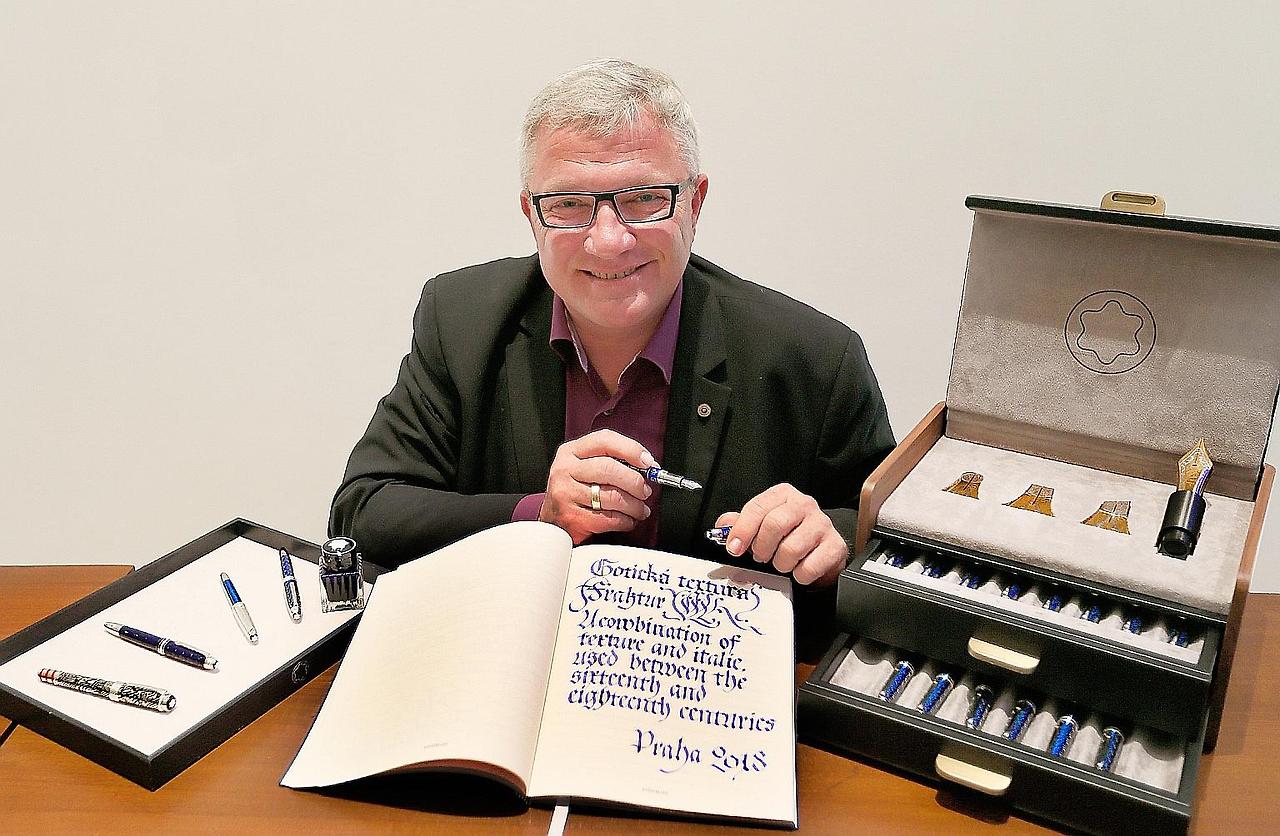 Gotická textura
Fraktur
A combination of
texture and italic,
used between the
sixteenth and
eighteenth centuries
Praha 2018